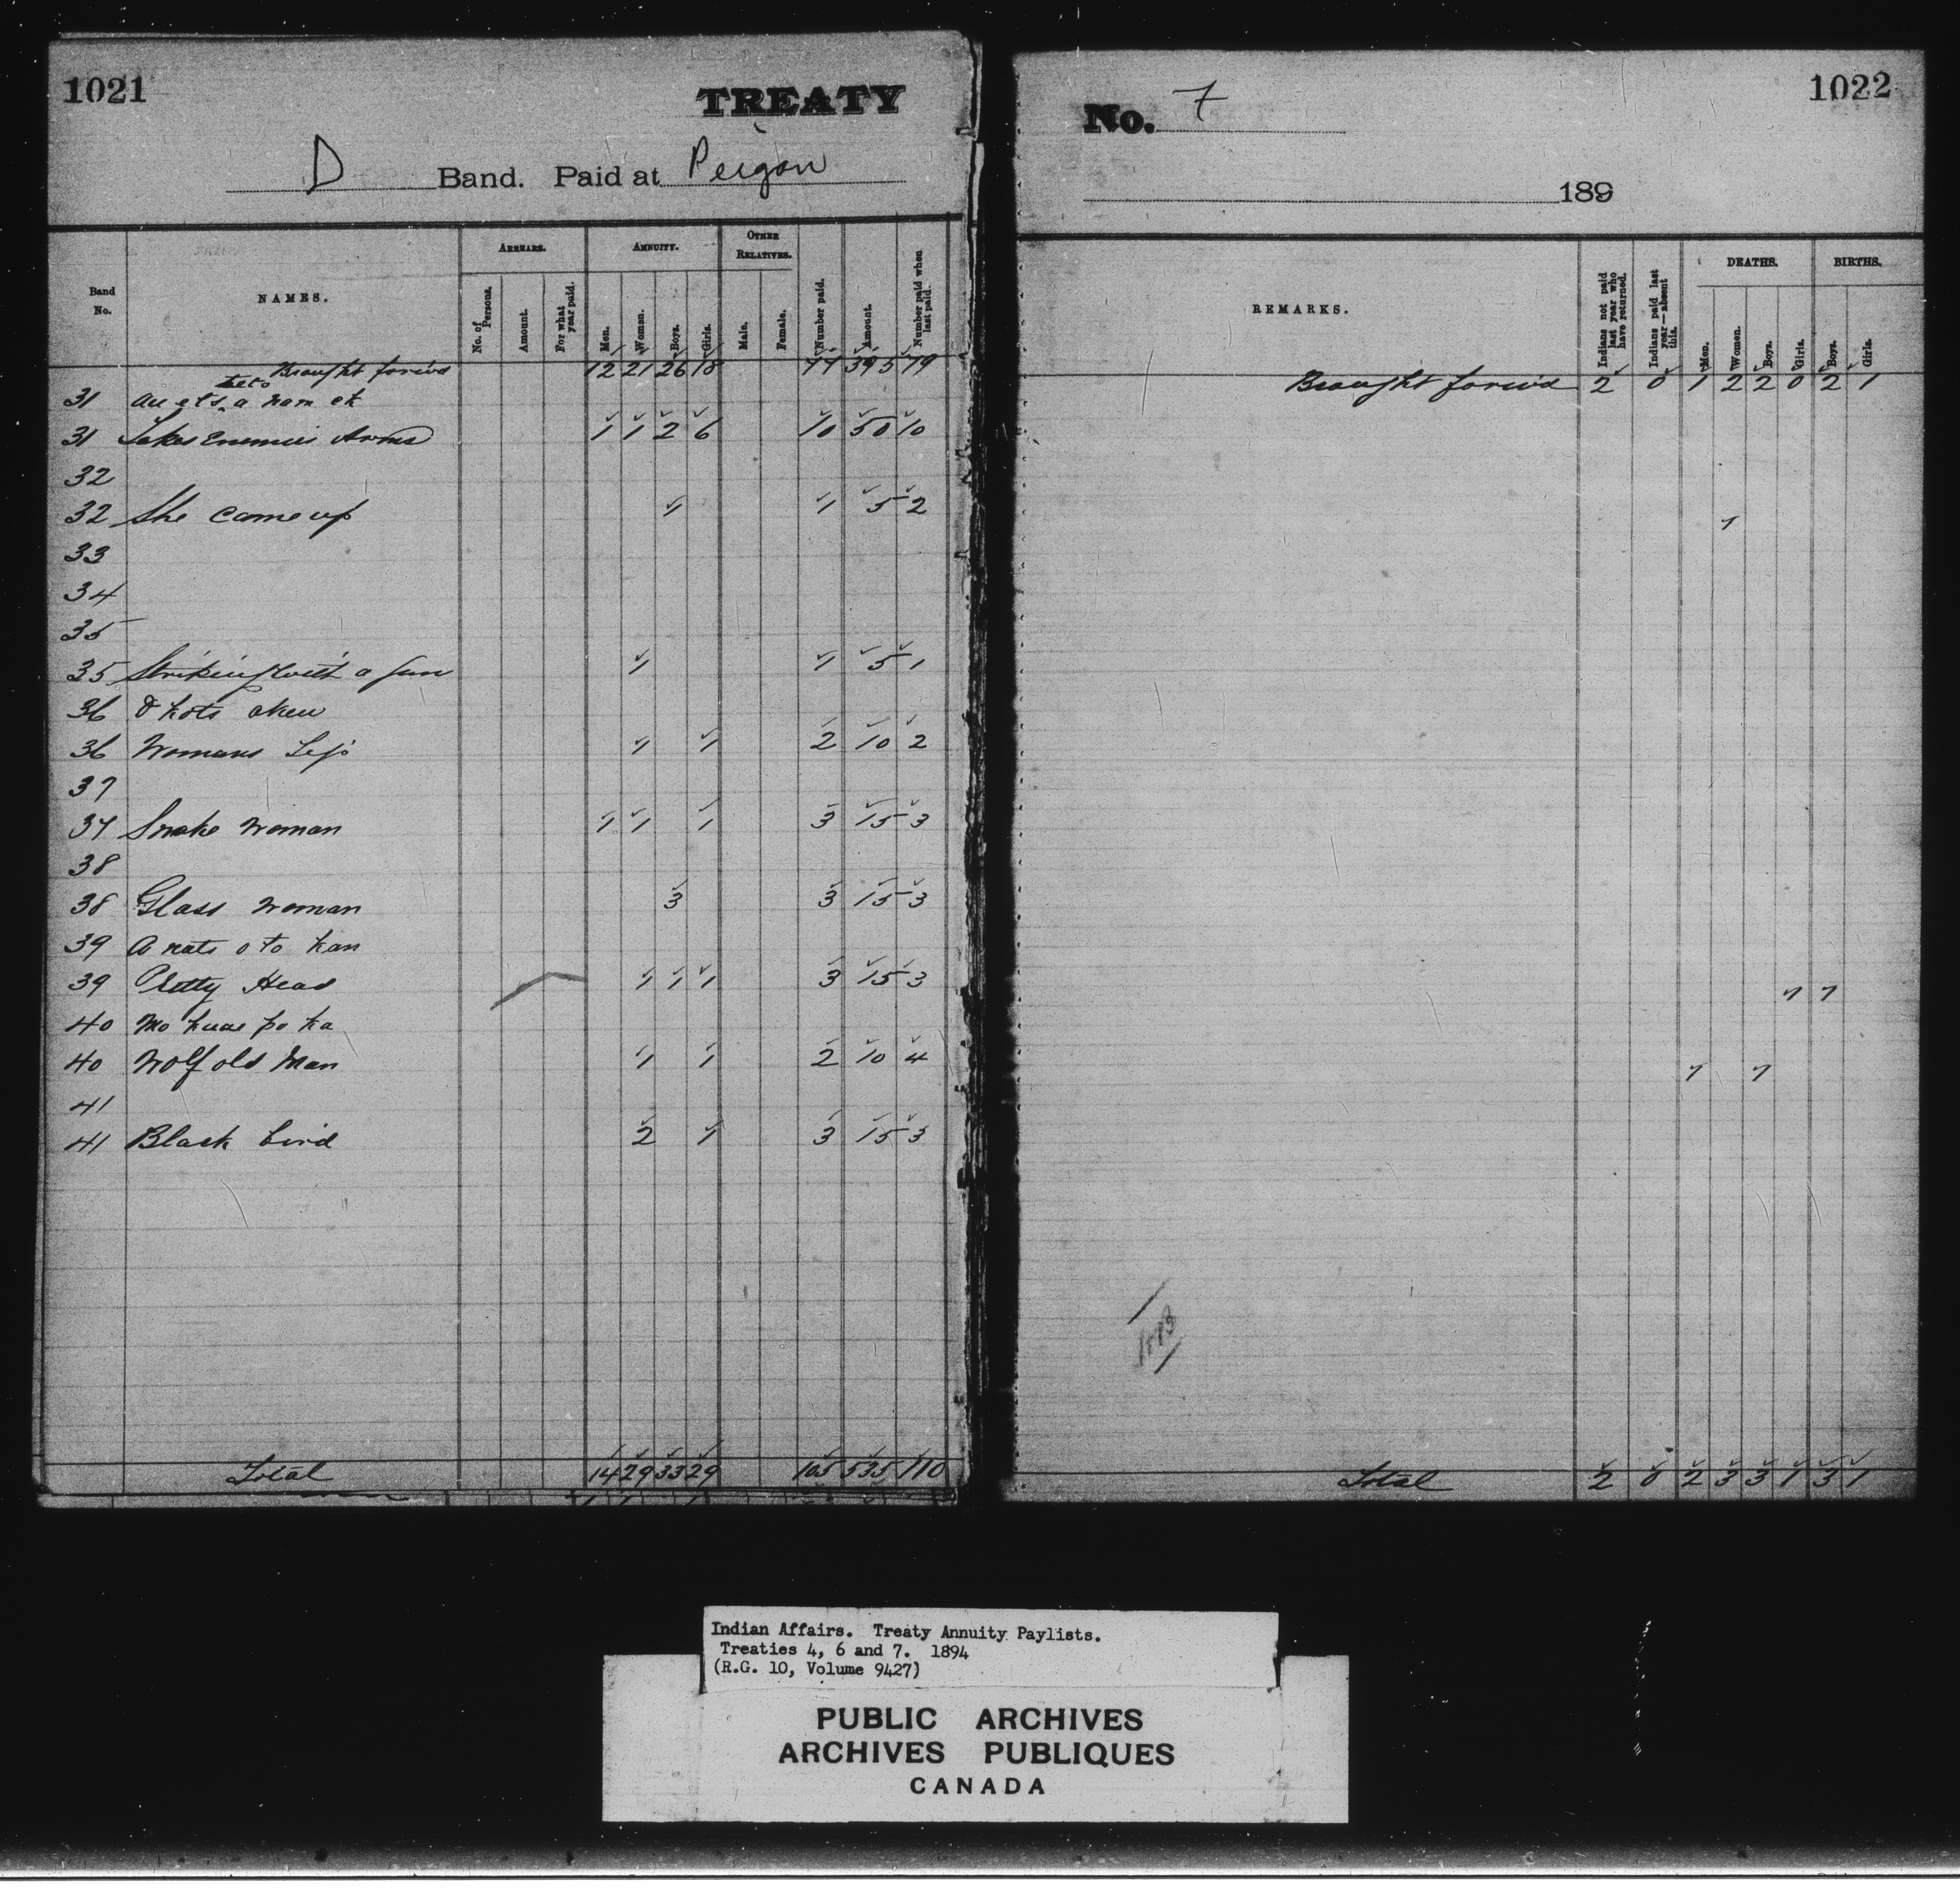 1021
TREATY
D Band. Paid at Peigan
Band No. NAMES. ARREARS. ANNUITY. OTHER RELATIVES.
No. of Persons. Amount. For what year paid. Men. Women. Boys. Girls. Male. Female. Number paid. Amount. Number paid when last paid.
Brought forw'd 12 21 26 18 77 395 79
31
31 Takes Enemies Arms 1 1 2 6 10 50 10
32
32 She came up 1 1 5 2
33
34
35
35 Striking with a gun 1 1 5 1
36
36 Womans 1 1 2 10 2
37
37 Snake Woman 1 1 1 3 15 3
38
38 Glass Woman 3 3 15 3
39 A nats o to kan
39 Pretty Head 1 1 1 3 15 3
40
40 Wolf old Man 1 1 2 10 4
41
41 Black bird 2 1 3 15 3
Total 14 29 33 29 105 535 110
1022
No. 7
189
REMARKS. Indians not paid last year who have returned. Indians paid last year—absent this. DEATHS. BIRTHS.
Men. Women. Boys. Girls. Boys. Girls.
Brought forw'd 2 0 1 2 2 0 2 1
1
1 1
1 1
Total 2 0 2 3 3 1 3 1
Indian Affairs. Treaty Annuity Paylists.
Treaties 4, 6 and 7. 1894
(R.G. 10, Volume 9427)
PUBLIC ARCHIVES
ARCHIVES PUBLIQUES
CANADA